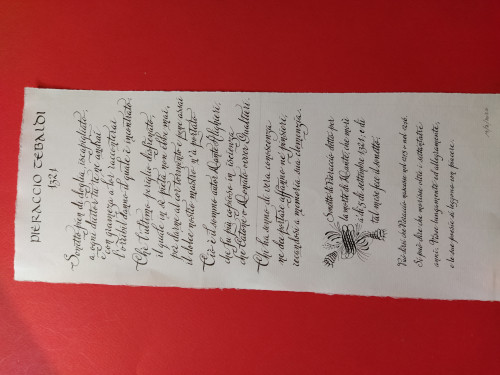 PIERACCIO TEBALDI
1321
Sonetto pien di doglia, iscapigliato,
a ogni dicitor tu te n'andrai
e con gramezza a lor racconterai
l'orribil danno il quale c'è incontrato.
Ché l'ultimo periglio dispietato,
il quale in sé pietà non ebbe mai,
per darne ai cor tormento e pene assai
il dolce nostro mastro n'à portato
Ciò è il sommo autor Dante Alighieri,
che fu più copioso in iscienza
che Catone o Donato o vero Gualtieri.
Chi ha senno di vera conoscenza
ne dee portar affanno ne' pensieri,
recandosi a memoria sua clemenza.
Sonetto di Pieraccio detto per
la morte di Dante, che morì
a dì di settembre 1321, e di
tal mese fece il sonetto.
che Pieraccio nascesse nel o nel
Si può dire che morisse oltre i
anni. Visse lungamente ed allegramente,
e le sue poesie si leggono con piacere.